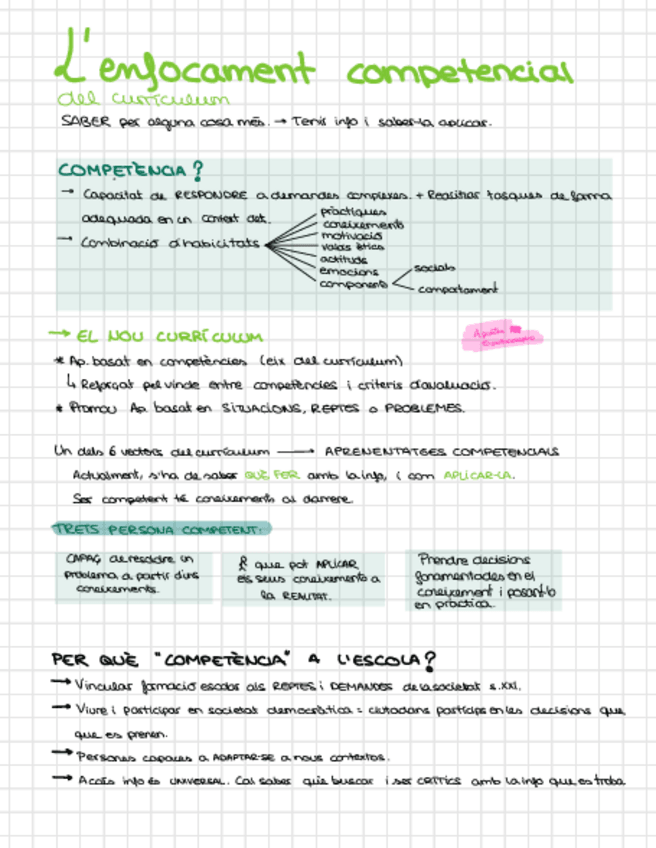 L'enfocament competencial
del currículum
SABER per alguna cosa més. → Tenir info i saber-la aplicar.
COMPETÈNCIA?
→ Capacitat de RESPONDRE a demandes complexes. + Realitzar tasques de forma
adequada en un context det.
→ Combinació d'habilitats
pràctiques
coneixements
motivació
valors ètics
actituds
emocions
components
socials
comportament
→ EL NOU CURRÍCULUM
* Ap. basat en competències (eix del currículum)
↳ Reforçat pel vincle entre competències i criteris d'avaluació.
* Promou Ap. basat en SITUACIONS, REPTES o PROBLEMES.
Un dels 6 vectors del currículum → APRENENTATGES COMPETENCIALS
Actualment, s'ha de saber QUÈ FER amb la info, i com APLICAR-LA.
Ser competent té coneixements al darrere.
TRETS PERSONA COMPETENT:
CAPAÇ de resoldre un
problema a partir d'uns
coneixements.
que pot APLICAR
els seus coneixements a
la REALITAT.
Prendre decisions
fonamentades en el
coneixement i posant-lo
en pràctica.
PER QUÈ "COMPETÈNCIA" A L'ESCOLA?
→ Vincular formació escolar als REPTES i DEMANDES de la societat s.XXI.
→ Viure i participar en societat democràtica = ciutadans partícips en les decisions que
que es prenen.
→ Persones capaces a ADAPTAR-SE a nous contextos.
→ Accés info és UNIVERSAL. Cal saber què buscar i ser CRÍTICS amb la info que es troba